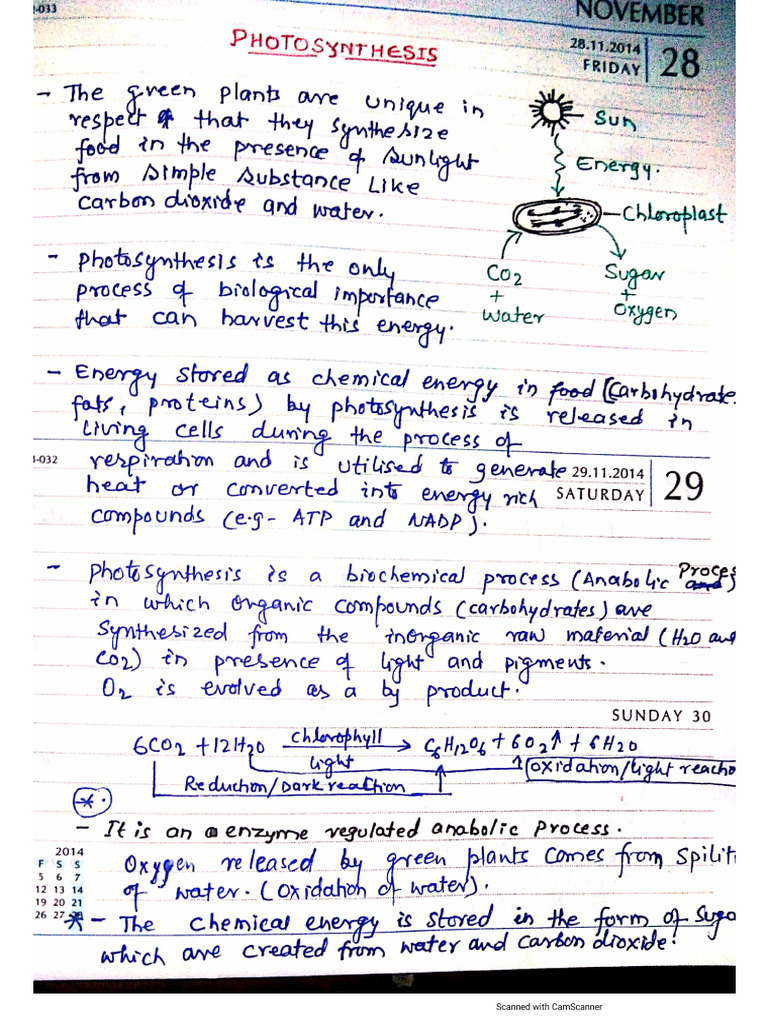 -033
NOVEMBER
28.11.2014
FRIDAY 28
PHOTOSYNTHESIS
- The green plants are unique in
respect that they synthesize
food in the presence of sunlight
from simple substance like
carbon dioxide and water.
Sun
Energy.
Chloroplast
CO2 + water
Sugar + oxygen
- photosynthesis is the only
process of biological importance
that can harvest this energy.
- Energy stored as chemical energy in food (carbohydrate,
fats, proteins) by photosynthesis is released in
living cells during the process of
-032
29.11.2014
SATURDAY 29
respiration and is utilised to generate
heat or converted into energy rich
compounds (e.g- ATP and NADP).
- photosynthesis is a biochemical process (Anabolic Proces)
in which organic compounds (carbohydrates) are
synthesized from the inorganic raw material (H2O and
CO2) in presence of light and pigments.
O2 is evolved as a by product.
SUNDAY 30
6CO2 + 12H2O chlorophyll light → C6H12O6 + 6O2↑ + 6H2O
Reduction/Dark reaction
(oxidation/light reactio
*.
- It is an enzyme regulated anabolic process.
2014
F S S
5 6 7
12 13 14
19 20 21
26 27
Oxygen released by green plants comes from spilit
of water. (oxidation of water).
* - The chemical energy is stored in the form of suga
which are created from water and carbon dioxide.
Scanned with CamScanner